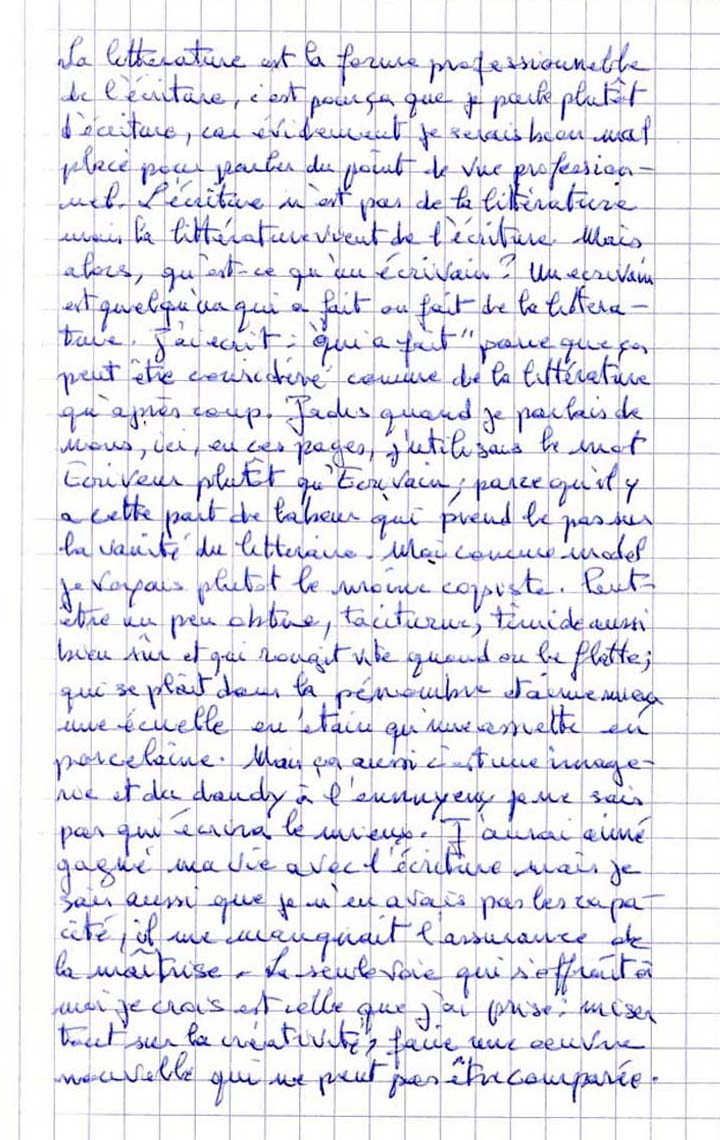 La litterature est la forme professionnelle
de l'écriture, c'est pour ça que je parle plutôt
d'écriture, car évidemment je serais beau mal
placé pour parler du point de vue profession-
nel. L'écriture n'est pas de la littérature
mais la littérature vient de l'écriture. Mais
alors, qu'est-ce qu'un écrivain? Un ecrivain
est quelqu'un qui a fait ou fait de la littera-
ture. J'ai ecrit : "qui a fait" parce que ça
peut être considéré comme de la littérature
qu'après coup. Jadis quand je parlais de
nous, ici, en ces pages, j'utilisais le mot
Ecriveur plutôt qu'Ecrivain, parce qu'il y
a cette part de labeur qui prend le pas sur
la vanité du litteraire. Moi comme model
je voyais plutot le moine copiste. Peut-
être un peu obtus, taciturne, timide aussi
bien sûr et qui rougit vite quand on le flatte;
qui se plaît dans la pénombre et aime mieux
une écuelle en étain qu'une assiette en
porcelaine. Mais ça aussi c'est une image-
rie et du dandy à l'ennuyeux je ne sais
pas qui écrira le mieux. J'aurai aimé
gagné ma vie avec l'écriture mais je
sais aussi que je n'en avais pas les capa-
cité, il me manquait l'assurance de
la maîtrise. La seule voie qui s'offrait à
moi je crois est celle que j'ai prise: miser
tout sur la créativité, faire une oeuvre
nouvelle qui ne peut pas être comparée.